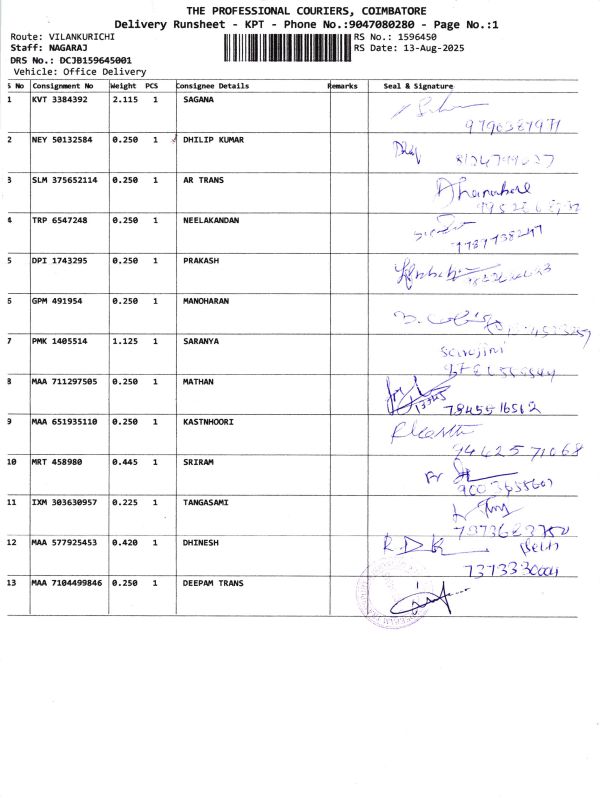 THE PROFESSIONAL COURIERS, COIMBATORE
Delivery Runsheet - KPT - Phone No.:9047080280 - Page No.:1
Route: VILANKURICHI RS No.: 1596450
Staff: NAGARAJ RS Date: 13-Aug-2025
DRS No.: DCJB159645001
Vehicle: Office Delivery
S No Consignment No Weight PCS Consignee Details Remarks Seal & Signature
1 KVT 3384392 2.115 1 SAGANA
2 NEY 50132584 0.250 1 DHILIP KUMAR
3 SLM 375652114 0.250 1 AR TRANS
4 TRP 6547248 0.250 1 NEELAKANDAN
5 DPI 1743295 0.250 1 PRAKASH
6 GPM 491954 0.250 1 MANOHARAN
7 PMK 1405514 1.125 1 SARANYA
Sarojini
8 MAA 711297505 0.250 1 MATHAN
13345
7845516562
9 MAA 651935110 0.250 1 KASTNHOORI
9442571068
10 MRT 458980 0.445 1 SRIRAM
11 IXM 303630957 0.225 1 TANGASAMI
12 MAA 577925453 0.420 1 DHINESH R.D
7373330004
13 MAA 7104499846 0.250 1 DEEPAM TRANS